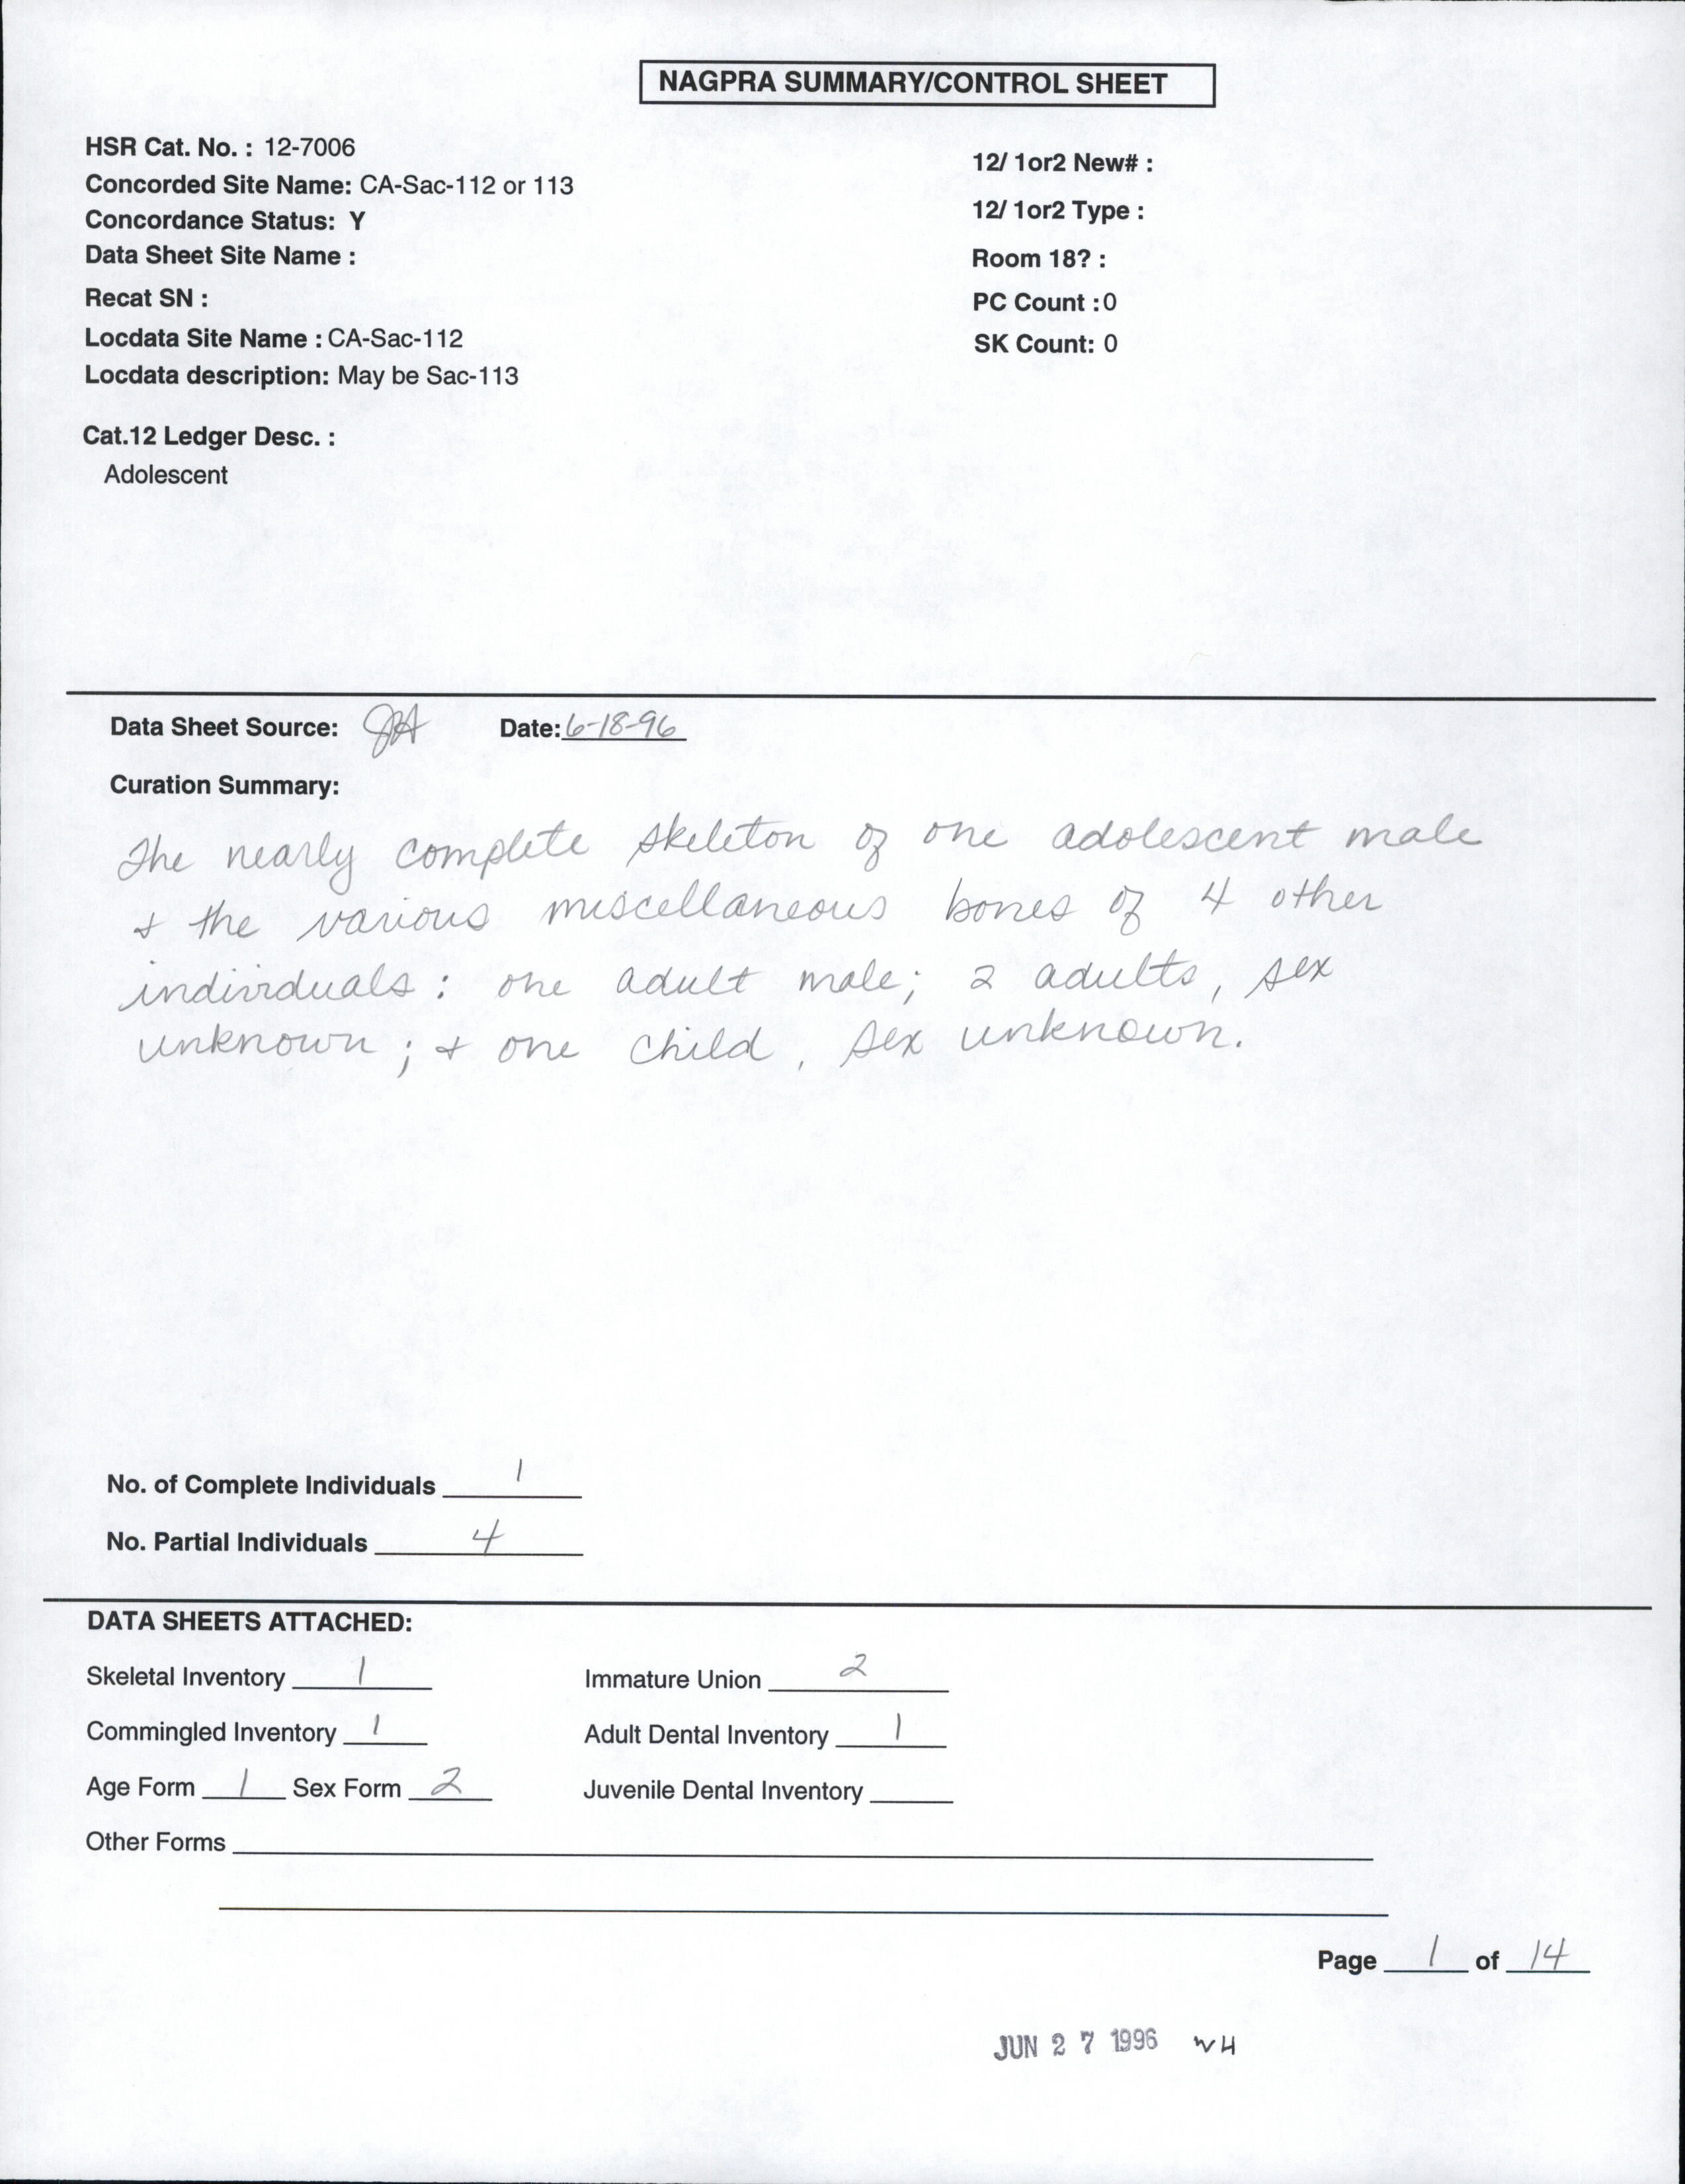 NAGPRA SUMMARY/CONTROL SHEET
HSR Cat. No. : 12-7006
Concorded Site Name: CA-Sac-112 or 113
Concordance Status: Y
Data Sheet Site Name :
Recat SN :
Locdata Site Name : CA-Sac-112
Locdata description: May be Sac-113
Cat.12 Ledger Desc. :
Adolescent
12/ 1or2 New# :
12/ 1or2 Type :
Room 18? :
PC Count :0
SK Count: 0
Data Sheet Source: Date: 6-18-96
Curation Summary:
The nearly complete skeleton of one adolescent male
& the various miscellaneous bones of 4 other
individuals : one adult male; 2 adults, sex
unknown ; & one child, sex unknown.
No. of Complete Individuals 1
No. Partial Individuals 4
DATA SHEETS ATTACHED:
Skeletal Inventory 1 Immature Union 2
Commingled Inventory 1 Adult Dental Inventory 1
Age Form 1 Sex Form 2 Juvenile Dental Inventory
Other Forms
Page 1 of 14
JUN 27 1996 WH